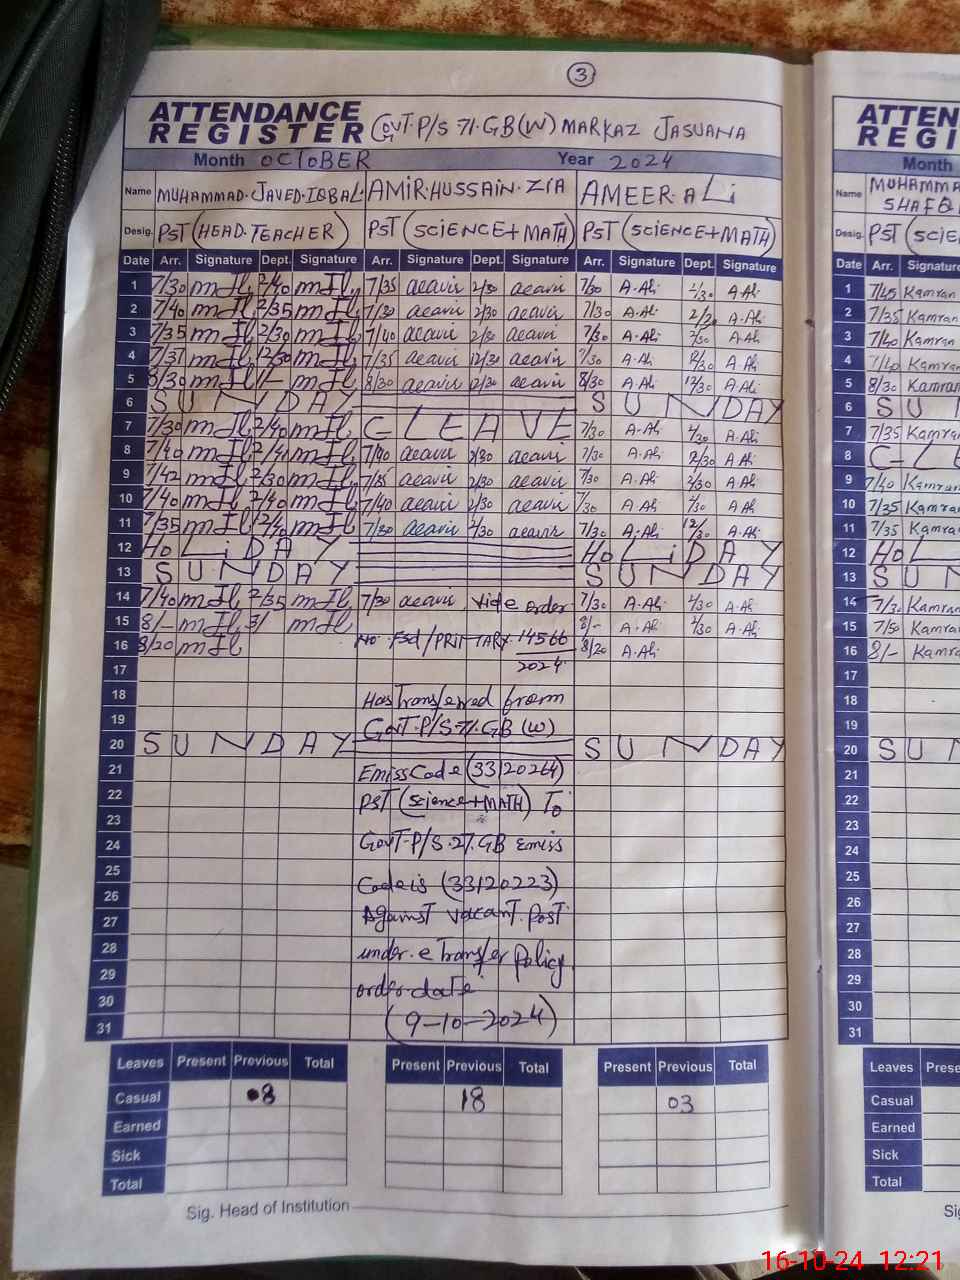 3
ATTENDANCE
REGISTER GOVT. P/S 71. GB (W) MARKAZ JASUANA
Month OCTOBER Year 2024
Name MUHAMMAD. JAVED. IQBAL. AMIR. HUSSAIN. ZIA AMEER. ALi
Desig. PST (HEAD. TEACHER) PST (SCIENCE + MATH) PST (SCIENCE + MATH)
Date Arr. Signature Dept. Signature Arr. Signature Dept. Signature Arr. Signature Dept. Signature
1 7/30 2/40 7/35 2/30 7/30 A.Ali 2/30 A.Ali
2 7/40 2/35 7/30 2/30 7/30 A.Ali A.Ali
3 7/35 2/30 7/40 2/30 7/30 A.Ali 2/30 A.Ali
4 7/31 12/30 7/35 12/30 7/30 A.Ali 12/30 A.Ali
5 8/30 1/- 8/30 12/30 8/30 A.Ali 12/30 A.Ali
6 SUNDAY SUNDAY
7 7/30 2/40 C LEAVE 7/30 A.Ali 2/30 A.Ali
8 7/40 2/40 7/40 2/30 7/30 A.Ali 2/30 A.Ali
9 7/42 2/30 7/35 2/30 7/30 A.Ali 2/30 A.Ali
10 7/40 2/40 7/40 2/30 7/30 A.Ali 2/30 A.Ali
11 7/35 12/4 7/30 7/30 A.Ali 12/30 A.Ali
12 HoLiDAY HoLiDAY
13 SUNDAY SUNDAY
14 7/40 2/35 7/30 vide order 7/30 A.Ali 2/30 A.Ali
15 8/- 3/ 8/- A.Ali 2/30 A.Ali
16 8/20 No. /PRIMARY. 14566/2024 8/20 A.Ali
17
18 Has Transferred from
19 GovT. P/S 71. GB (W)
20 SUNDAY SUNDAY
21 Emiss Code (33120264)
22 PST (Science + MATH) To
23
24 GovT. P/S. 27. GB Emiss
25
26 Code is (33120223)
27 Against Vacant. Post
28 under. e Transfer Policy
29 order. date
30 (9-10-2024)
31
Leaves Present Previous Total Present Previous Total Present Previous Total
Casual 08 18 03
Earned
Sick
Total
Sig. Head of Institution
ATTEN
REGI
Month
Name MUHAMMA
SHAFQ
Desig. PST (SCIE
Date Arr. Signature
1 7/45 Kamran
2 7/35 Kamran
3 7/40 Kamran
4 7/40 Kamran
5 8/30 Kamran
6 SUN
7 7/35 Kamran
8 C-LE
9 7/40 Kamran
10 7/35 Kamran
11 7/35 Kamran
12 HoL
13 SU
14 7/30 Kamran
15 7/50 Kamran
16 8/- Kamran
17
18
19
20 SUN
21
22
23
24
25
26
27
28
29
30
31
Leaves Prese
Casual
Earned
Sick
Total
Sig
16-10-24 12:21